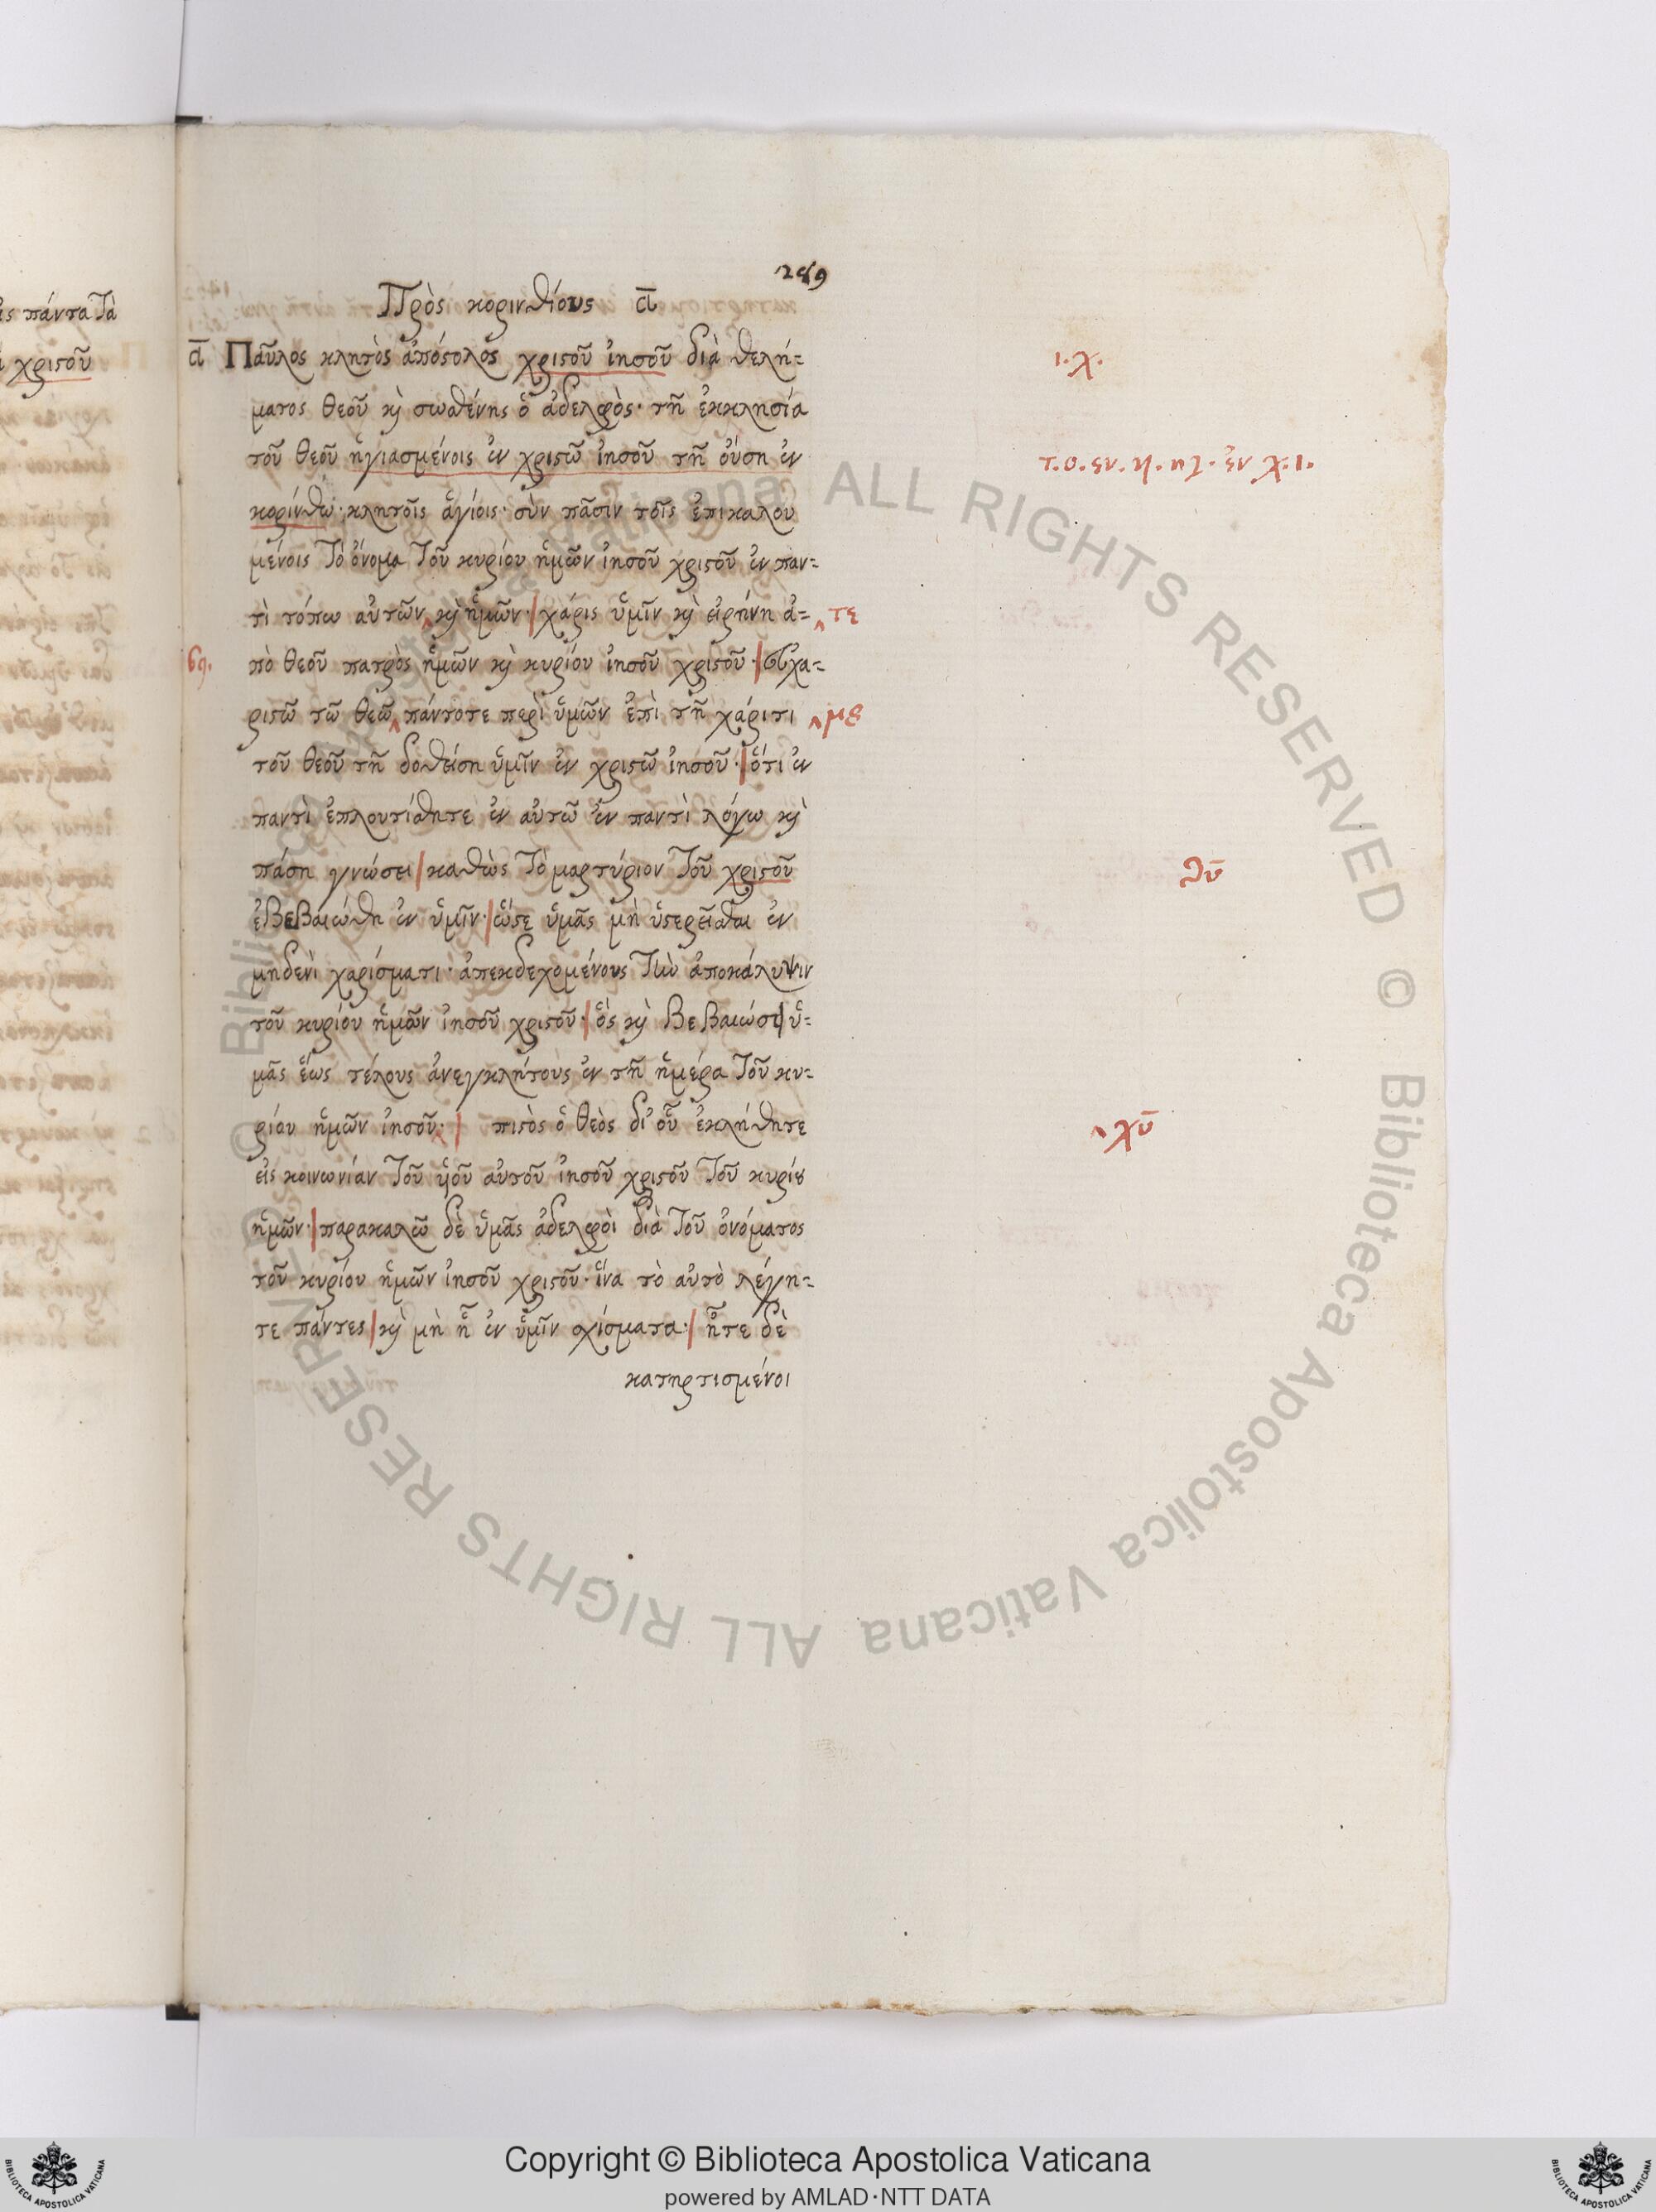 ὶς πάντα τὰ
χριστοῦ
289
Πρὸς κορινθίους α
α Παῦλος κλητὸς ἀπόστολος χριστοῦ ἰησοῦ διὰ θελή-
ματος θεοῦ κὶ σωσθένης ὁ ἀδελφὸς· τῆ ἐκκλησία
τοῦ θεοῦ ἡγιασμένοις ἐν χριστῶ ἰησοῦ τῆ οὔση ἐν
κορίνθω· κλητοῖς ἁγίοις· σὺν πᾶσιν τοῖς ἐπικαλου
μένοις τὸ ὄνομα τοῦ κυρίου ἡμῶν ἰησοῦ χριστοῦ ἐν παν-
τὶ τόπω αὐτῶν ‸ κὶ ἡμῶν· | χάρις ὑμῖν κὶ εἰρήνη ἀ-
πὸ θεοῦ πατρὸς ἡμῶν κὶ κυρίου ἰησοῦ χριστοῦ· | εὐχα-
ριστῶ τῶ θεῶ ‸ πάντοτε περὶ ὑμῶν ἐπὶ τῆ χάριτι
τοῦ θεοῦ τῆ δοθείση ὑμῖν ἐν χριστῶ ἰησοῦ· | ὅτι ἐν
παντὶ ἐπλουτίσθητε ἐν αὐτῶ ἐν παντὶ λόγω κὶ
πάση γνώσει | καθὼς τὸ μαρτύριον τοῦ χριστοῦ
ἐβεβαιώθη ἐν ὑμῖν· | ὥστε ὑμᾶς μὴ ὑστερεῖσθαι ἐν
μηδενὶ χαρίσματι· ἀπεκδεχομένους τὴν ἀποκάλυψιν
τοῦ κυρίου ἡμῶν ἰησοῦ χριστοῦ· | ὃς κὶ βεβαιώσει ὑ-
μᾶς ἕως τέλους ἀνεγκλήτους ἐν τῆ ἡμέρα τοῦ κυ-
ρίου ἡμῶν ἰησοῦ· | πιστὸς ὁ θεὸς δι' οὗ ἐκλήθητε
εἰς κοινωνίαν τοῦ υἱοῦ αὐτοῦ ἰησοῦ χριστοῦ τοῦ κυρίου
ἡμῶν· | παρακαλῶ δὲ ὑμᾶς ἀδελφοὶ διὰ τοῦ ὀνόματος
τοῦ κυρίου ἡμῶν ἰησοῦ χριστοῦ· ἵνα τὸ αὐτὸ λέγη-
τε πάντες | κὶ μὴ ἦ ἐν ὑμῖν σχίσματα· | ἦτε δὲ
κατηρτισμένοι
ι.χ.
‸ τε
‸ με
θῦ
‸ χῦ
© Biblioteca Apostolica Vaticana ALL RIGHTS RESERVED © Biblioteca Apostolica Vaticana ALL RIGHTS RESERVED
Copyright © Biblioteca Apostolica Vaticana
powered by AMLAD·NTT DATA
BIBLIOTECA APOSTOLICA VATICANA
BIBLIOTECA APOSTOLICA VATICANA